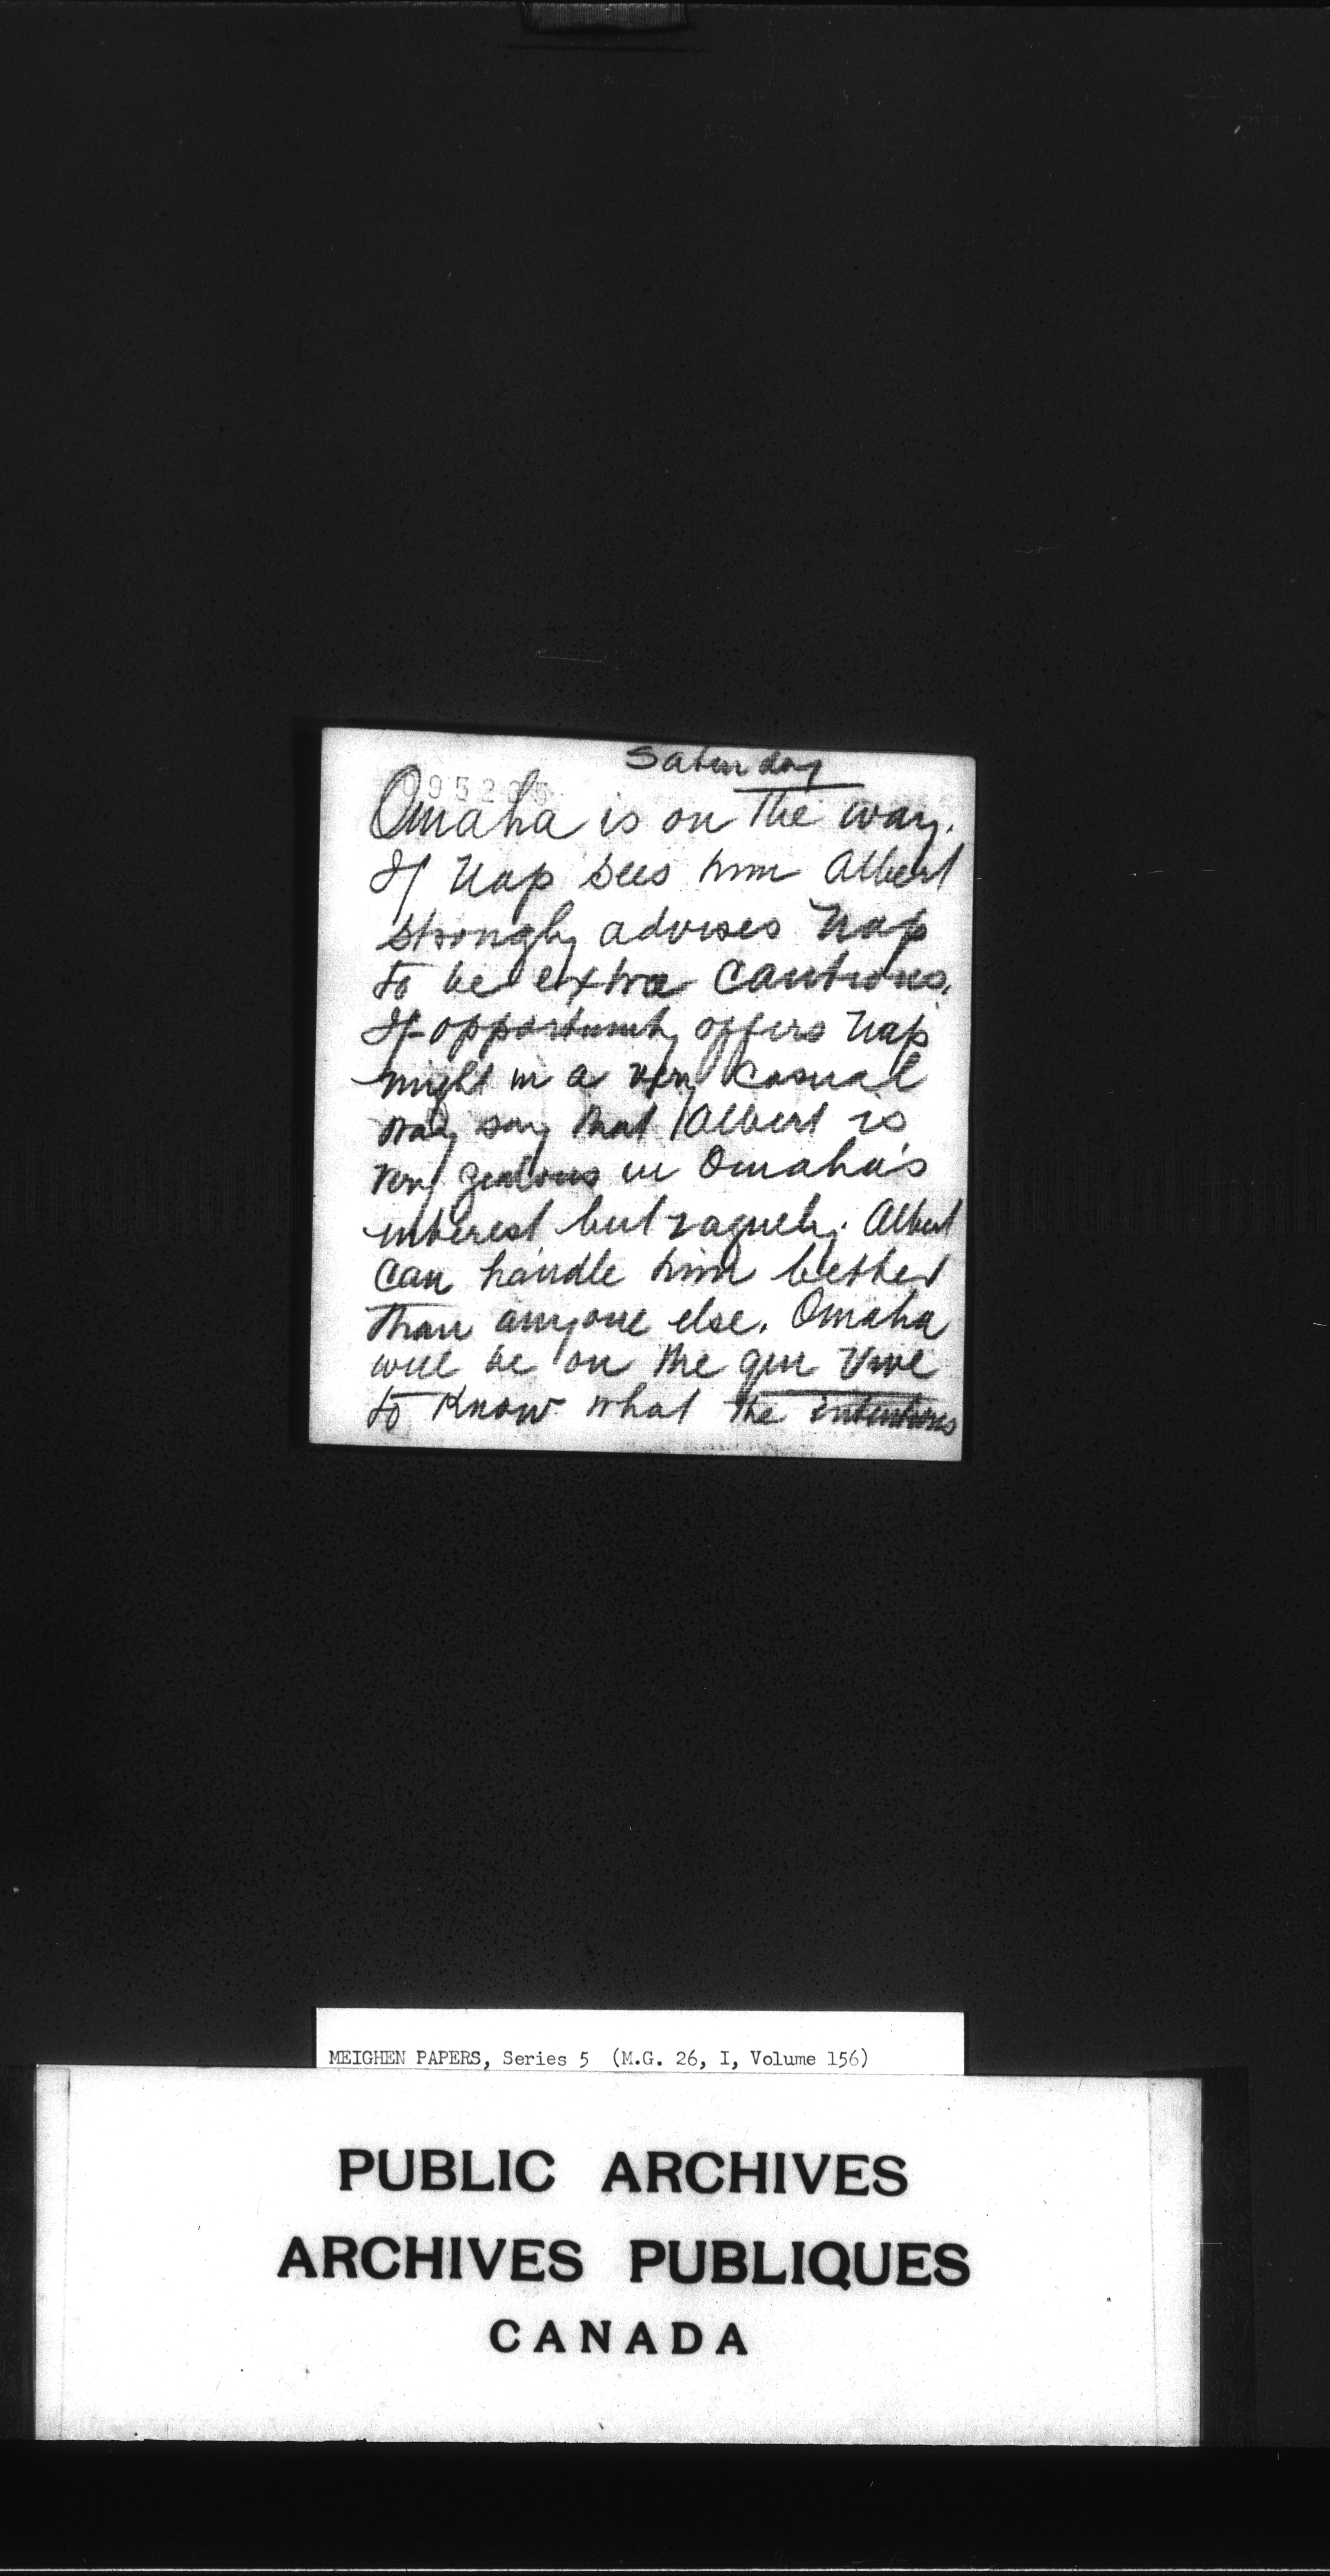 Saturday
Omaha is on the way.
If Nap sees him Albert
strongly advises Nap
to be extra cautious.
If opportunity offers Nap
might in a very casual
way say that Albert is
very zealous in Omaha's
interest but vaguely. Albert
can handle him better
than anyone else. Omaha
will be on the qui vive
to know what the intentions
MEIGHEN PAPERS, Series 5 (M.G. 26, I, Volume 156)
PUBLIC ARCHIVES
ARCHIVES PUBLIQUES
CANADA